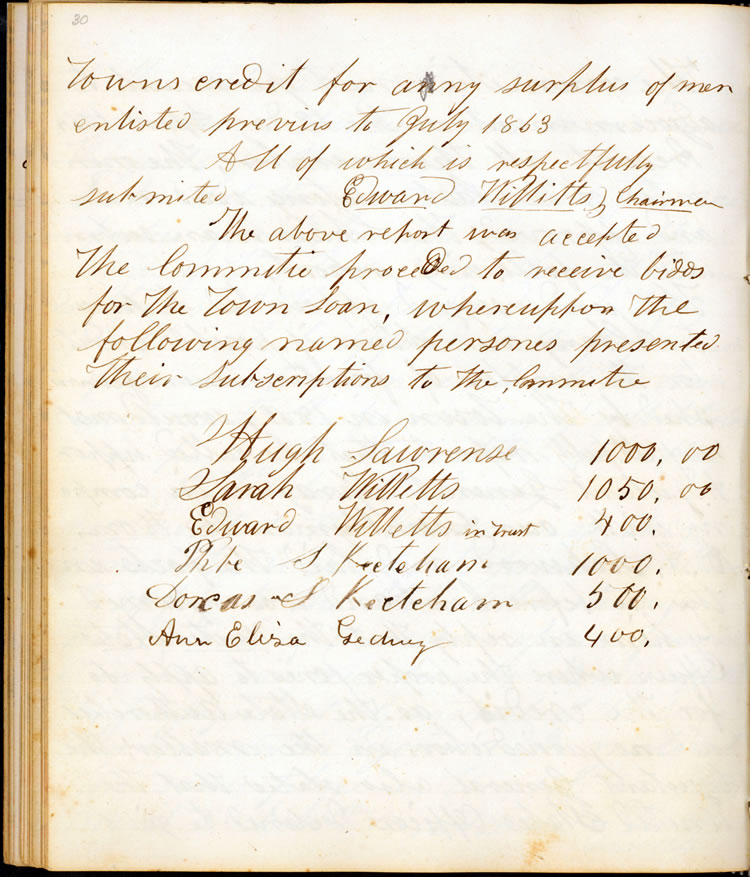 30
Towns credit for anny surplus of men
enlisted previus to July 1863
All of which is respectfully
submited Edward Willitts, Chairman
The above report was accepted
The Committie proceded to receive bids
for the Town Loan, whereuppon the
following named persones presented
their subscriptions to the Committie
Hugh Lawrense 1000.00
Sarah Willetts 1050.00
Edward Willetts in trust 400.
Phbe S Keteham 1000.
Dorcas S Keeteham 500.
Ann Eliza Gedney 400.